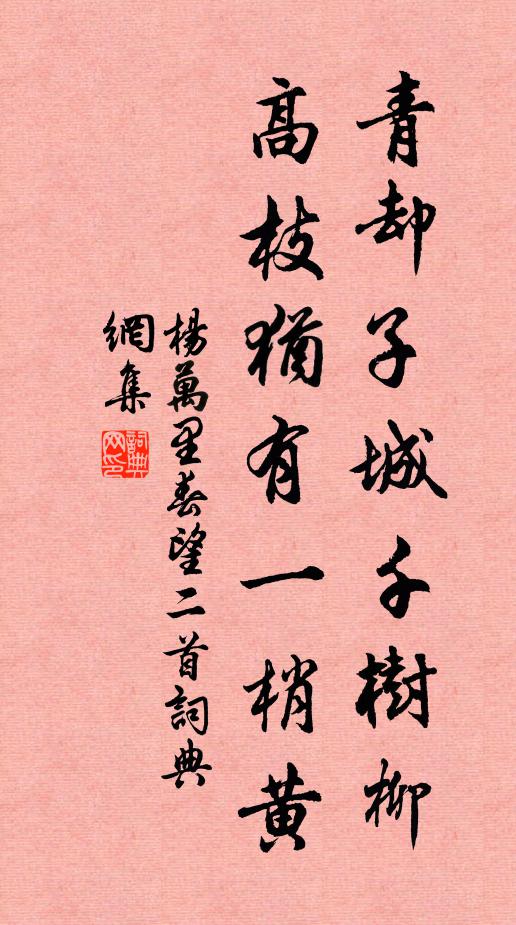 青却子城千樹柳
高枝猶有一梢黄
楊萬里春望二首詞典
網集
詞典
网印